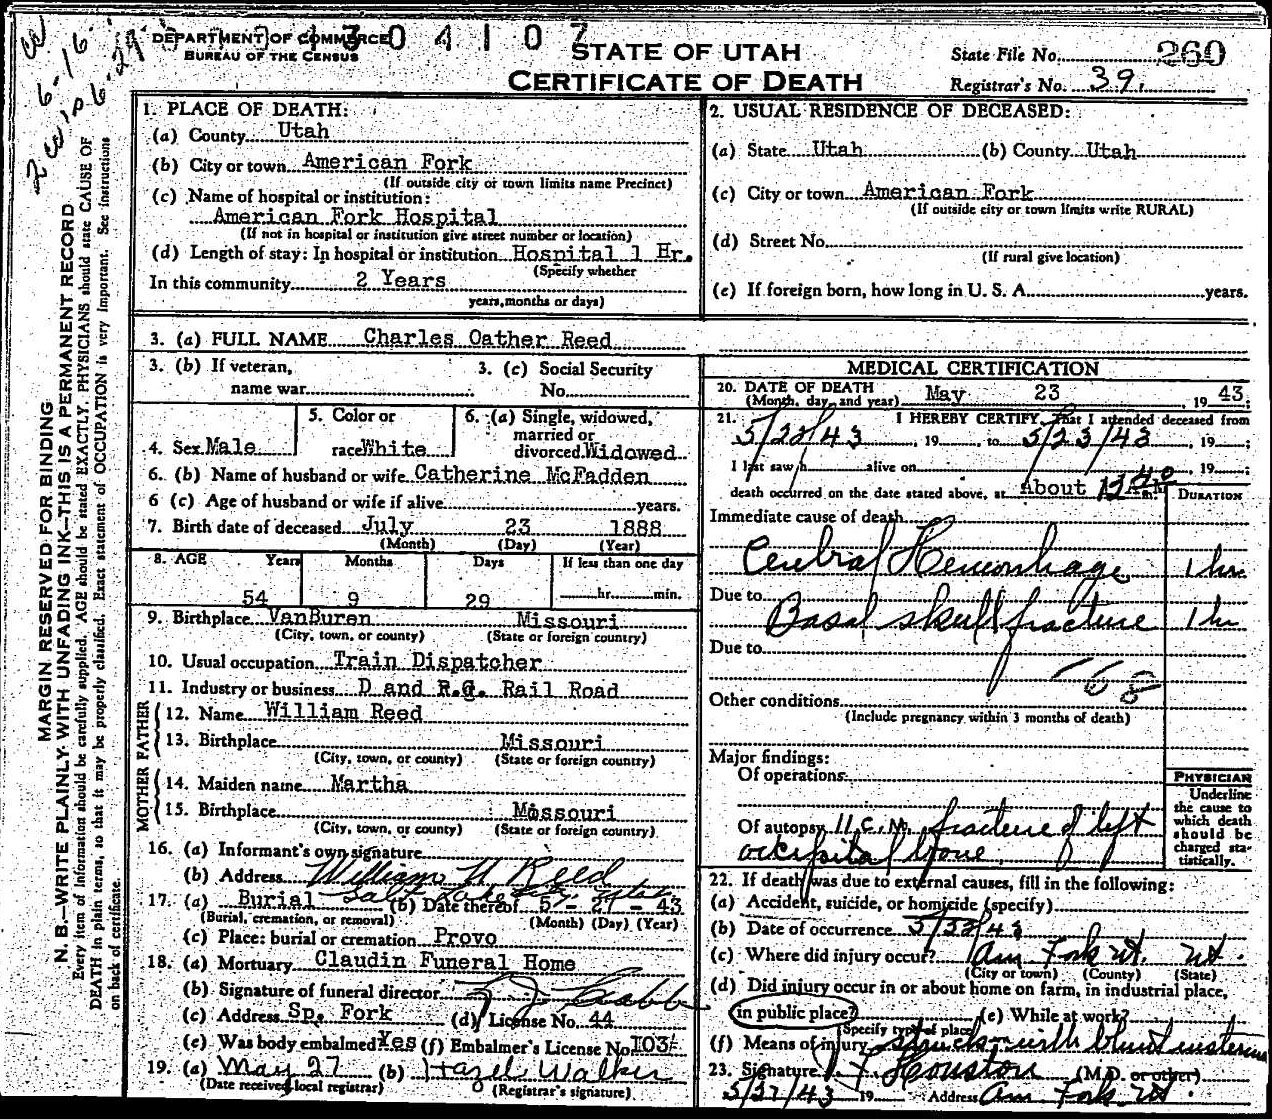 DEPARTMENT OF COMMERCE
BUREAU OF THE CENSUS
1304107
STATE OF UTAH
CERTIFICATE OF DEATH
State File No. 260
Registrar's No. 39
MARGIN RESERVED FOR BINDING
N. B.—WRITE PLAINLY WITH UNFADING INK—THIS IS A PERMANENT RECORD
Every item of information should be carefully supplied. AGE should be stated EXACTLY. PHYSICIANS should state CAUSE OF
DEATH in plain terms, so that it may be properly classified. Exact statement of OCCUPATION is very important. See instructions
on back of certificate.
1. PLACE OF DEATH:
(a) County Utah
(b) City or town American Fork
(If outside city or town limits name Precinct)
(c) Name of hospital or institution:
American Fork Hospital
(If not in hospital or institution give street number or location)
(d) Length of stay: In hospital or institution Hospital 1 Hr.
(Specify whether
In this community 2 Years
years, months or days)
2. USUAL RESIDENCE OF DECEASED:
(a) State Utah (b) County Utah
(c) City or town American Fork
(If outside city or town limits write RURAL)
(d) Street No.
(If rural give location)
(e) If foreign born, how long in U. S. A. years.
3. (a) FULL NAME Charles Oather Reed
3. (b) If veteran,
name war
3. (c) Social Security
No.
4. Sex Male
5. Color or
race White
6. (a) Single, widowed,
married or
divorced Widowed
6. (b) Name of husband or wife Catherine McFadden
6 (c) Age of husband or wife if alive years.
7. Birth date of deceased July 23 1888
(Month) (Day) (Year)
8. AGE Years Months Days If less than one day
54 9 29 hr. min.
9. Birthplace VanBuren Missouri
(City, town, or county) (State or foreign country)
10. Usual occupation Train Dispatcher
11. Industry or business D and R.G. Rail Road
FATHER
12. Name William Reed
13. Birthplace Missouri
(City, town, or county) (State or foreign country)
MOTHER
14. Maiden name Martha
15. Birthplace Missouri
(City, town, or county) (State or foreign country)
16. (a) Informant's own signature
William H Reed
(b) Address Salt Lake City Utah
17. (a) Burial (b) Date thereof 5-27-43
(Burial, cremation, or removal) (Month) (Day) (Year)
(c) Place: burial or cremation Provo
18. (a) Mortuary Claudin Funeral Home
(b) Signature of funeral director
(c) Address Sp. Fork (d) License No. 44
(e) Was body embalmed Yes (f) Embalmer's License No. 103
19. (a) May 27 (b) Hazel Walker
(Date received local registrar) (Registrar's signature)
MEDICAL CERTIFICATION
20. DATE OF DEATH May 23, 1943;
(Month, day, and year)
21. I HEREBY CERTIFY, that I attended deceased from
5/22/43, 19 to 5/23/43, 19 ;
I last saw h alive on , 19 ;
death occurred on the date stated above, at About m. DURATION
Immediate cause of death
Cerebral Hemorrhage 1 hr.
Due to
Basal skull fracture 1 hr
Due to
168
Other conditions
(Include pregnancy within 3 months of death)
Major findings:
Of operations
Of autopsy fracture of left
occipital bone
PHYSICIAN
Underline
the cause to
which death
should be
charged sta-
tistically.
22. If death was due to external causes, fill in the following:
(a) Accident, suicide, or homicide (specify)
(b) Date of occurrence 5/22/43
(c) Where did injury occur? Am Fork Ut. Ut.
(City or town) (County) (State)
(d) Did injury occur in or about home on farm, in industrial place,
in public place? (e) While at work?
(Specify type of place
(f) Means of injury struck with blunt
23. Signature Houston (M.D. or other)
5/27/43 19 Address Am Fork Ut